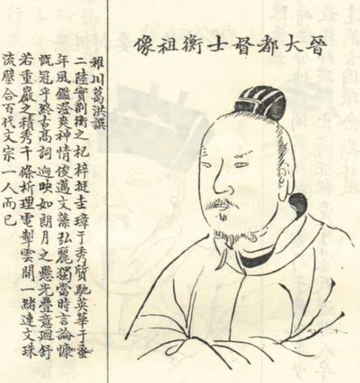 晉大都督士衡祖像
稚川葛洪譔
二陸實荊衡之杞梓挺圭璋于秀質馳英華于蚤
年風鑑澄爽神情俊邁文藻弘麗獨當時言論慷
慨冠乎古高詞迥映如朗月之懸光疊意迴舒
若重巖之積秀千條析理電掣雲開一緒連文珠
流璧合百代文宗一人而已